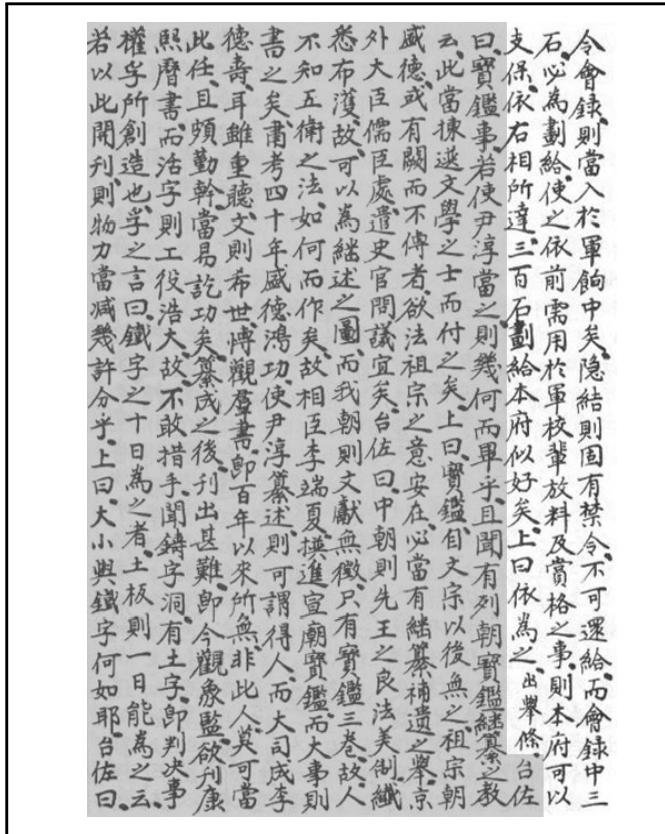 令會錄則當入於軍餉中矣隐結則固有禁令不可還給而會錄中三
石必為劃給使之依前需用於軍校輩放料及賞格之事則本府可以
支保依右相所達三百石劃給本府似好矣上曰依為之出擧條台佐
曰寶鑑事若使尹淳當之則幾何而畢乎且聞有列朝寶鑑継纂之敎
云此當揀選文學之士而付之矣上曰寶鑑自文宗以後無之祖宗朝
盛德或有闕而不傳者欲法祖宗之意安在必當有継纂補遺之擧京
外大臣儒臣處遣史官問議宜矣台佐曰中朝則先王之良法美制纖
悉布濩故可以為継述之圖而我朝則文獻無徵只有寶鑑三卷故人
不知五衛之法如何而作矣故相臣李端夏撰進宣廟寶鑑而大事則
書之矣肅考四十年盛德鴻功使尹淳纂述則可謂得人而大司成李
德壽耳雖重聽文則希世博觀群書卽百年以來所無非此人莫可當
此任且頗勤幹當易訖功矣纂成之後刊出甚難卽今觀象監欲刊康
熙曆書而活字則工役浩大故不敢措手聞鑄字洞有土字卽判决事
權孚所創造也孚之言曰鐵字之十日為之者土板則一日能為之云
若以此開刊則物力當减幾許分乎上曰大小與鐵字何如耶台佐曰